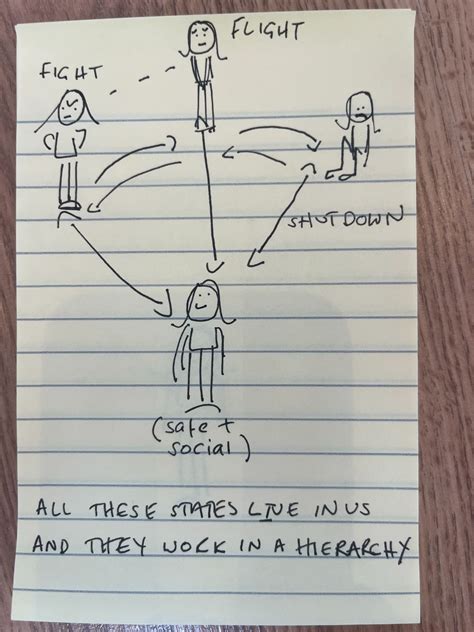 FLIGHT
FIGHT
SHUTDOWN
(safe +
social)
ALL THESE STATES LIVE IN US
AND THEY WORK IN A HIERARCHY